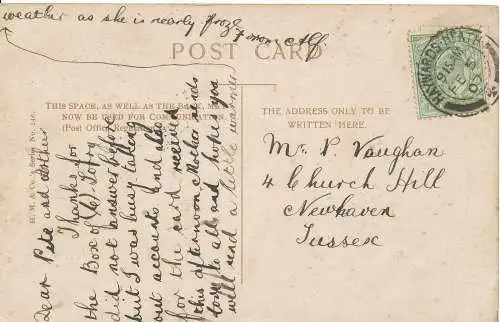 weather as she is nearly froze
From Alf
POST CARD
THIS SPACE, AS WELL AS THE BACK, MAY
NOW BE USED FOR COMMUNICATION.
(Post Office Regulation)
THE ADDRESS ONLY TO BE
WRITTEN HERE.
HAYWARDS HEATH
Mr P. Vaughan
4 Church Hill
Newhaven
Sussex
Dear Pete and
Thanks for
the Box of
did not answer before
but I was busy taking
out accounts and also
for the card received
this afternoon Mother sends
love to all and hopes you
will send a little warmer